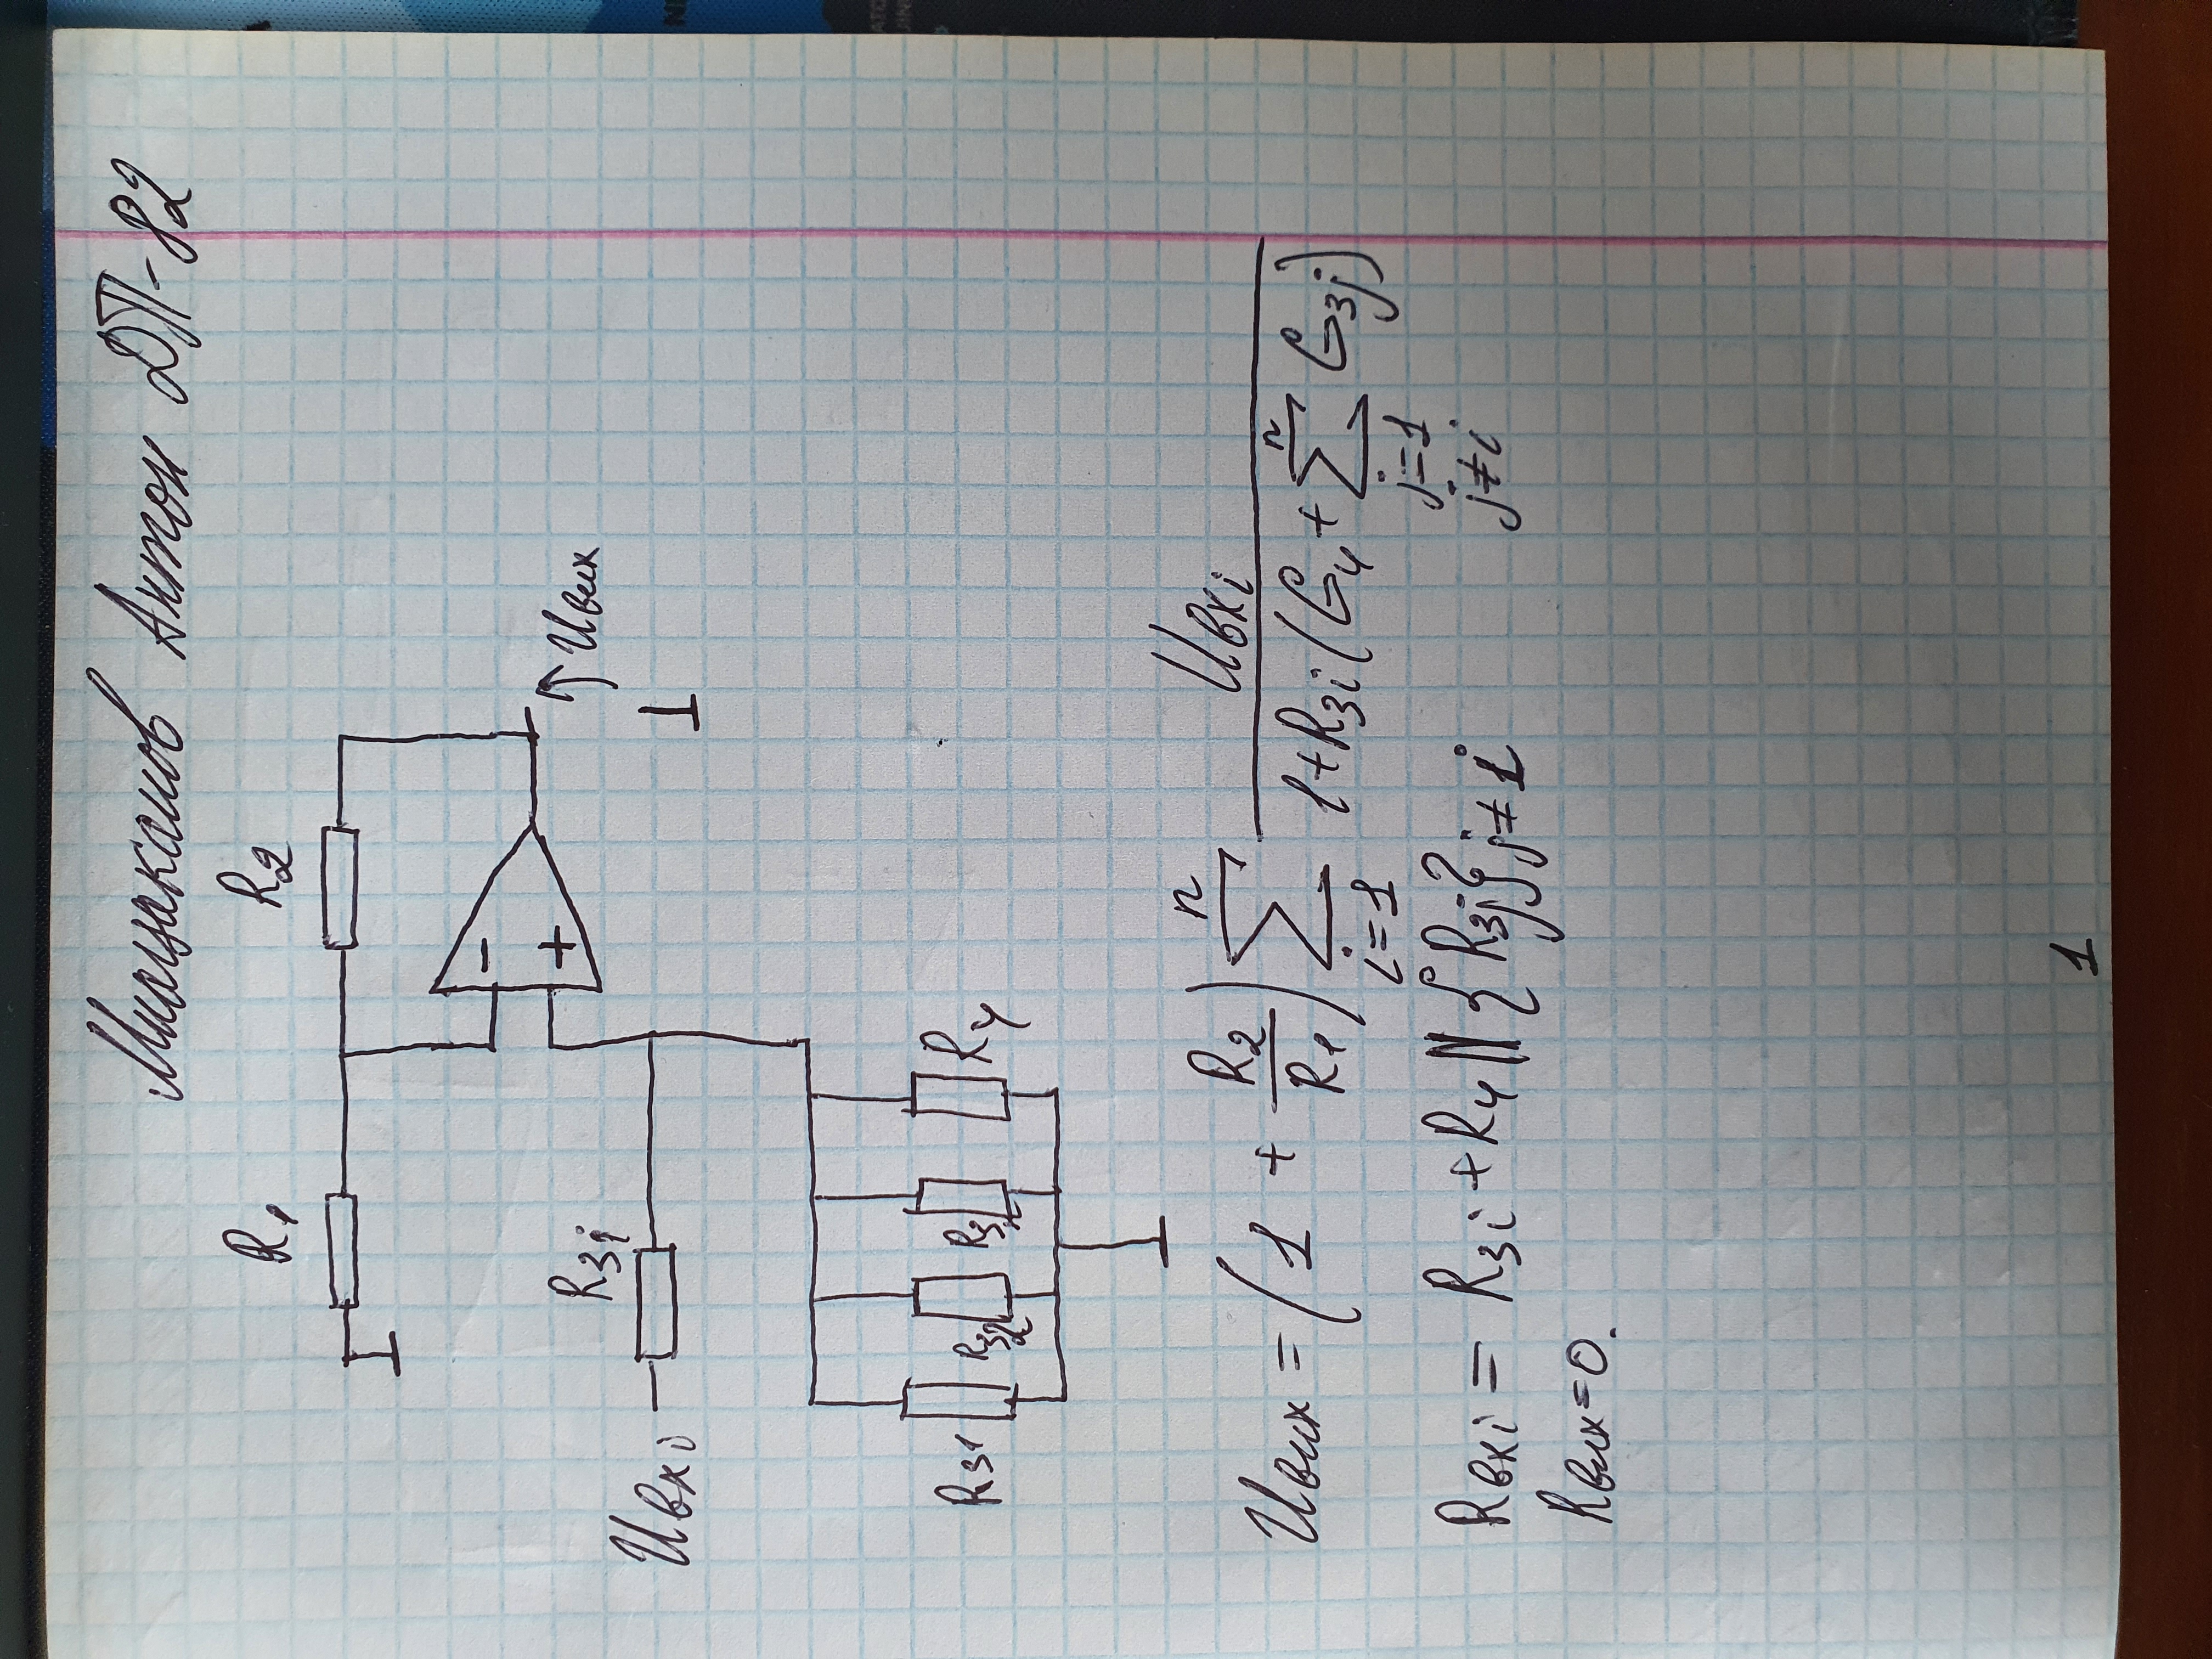 Мнацаканов Антон ДП-82
R₁ R₂
-
+
R₃ᵢ
Uвхᵢ
↑ Uвих
R₃₁ R₃₂ R₃ R₄
Uвих = (1 + R₂/R₁) ∑ⁿᵢ₌₁ Uвхᵢ / (1+R₃ᵢ(G₄+∑ⁿⱼ₌₁ G₃ⱼ)
j≠i
Rвхᵢ = R₃ᵢ + R₄ || {R₃ⱼ}j≠1
Rвих=0.
1